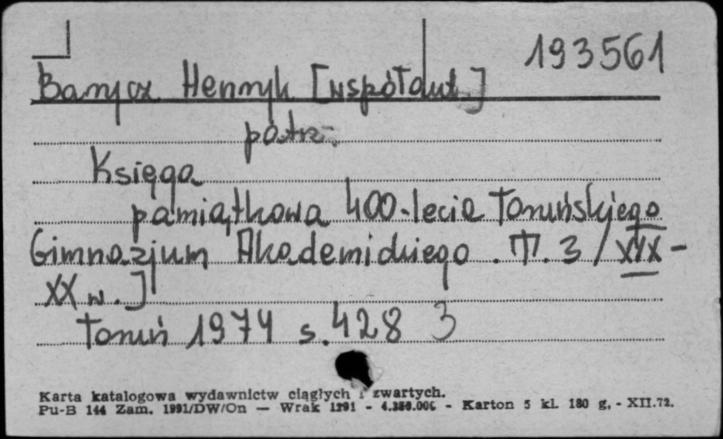 193561
Barycz Henryk [współaut.]
patrz:
Księga
pamiątkowa 400-lecia Toruńskiego
Gimnazjum Akademickiego. T. 3 / XIX -
XX w. ]
Toruń 1974 s. 428 3
Karta katalogowa wydawnictw ciągłych i zwartych.
Pu-B 144 Zam. 1991/DW/On — Wrak 1291 - 4.350.000 - Karton 5 kl. 180 g. - XII.72.